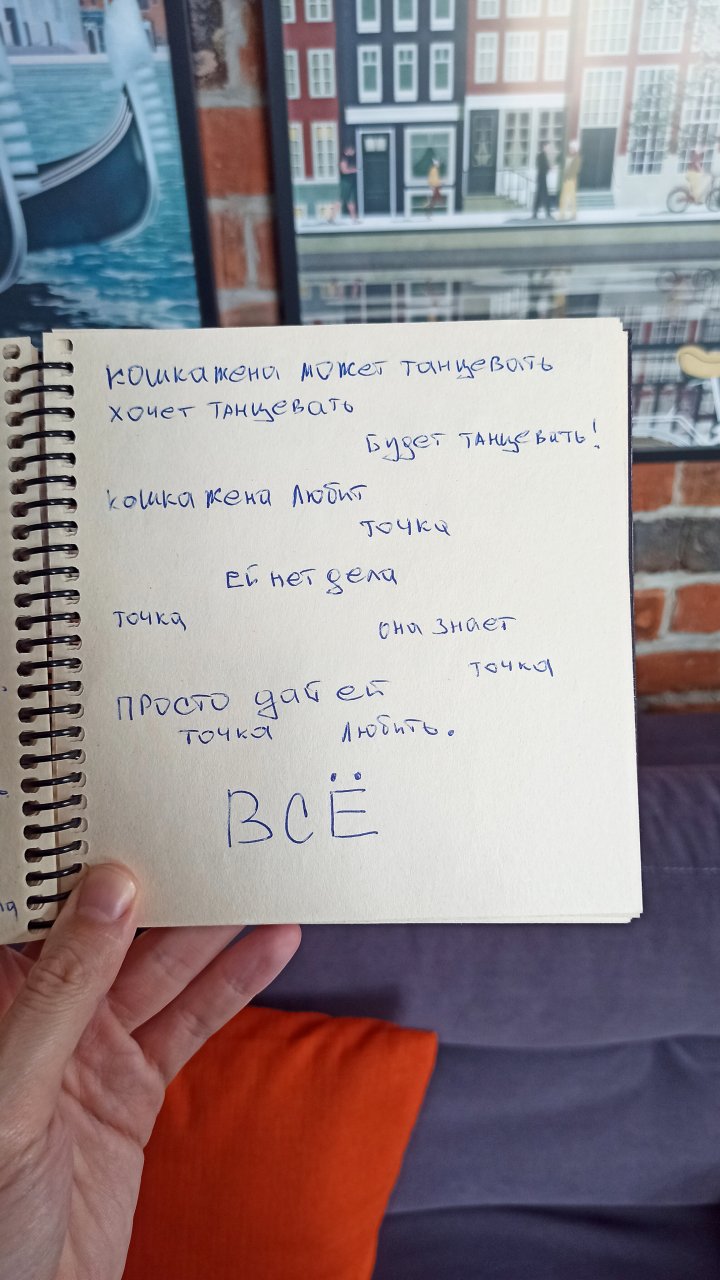 кошкажена может танцевать
хочет танцевать
Будет танцевать!
кошкажена любит
точка
ей нет дела
точка
она знает
точка
просто дай ей
точка любить.
ВСЁ